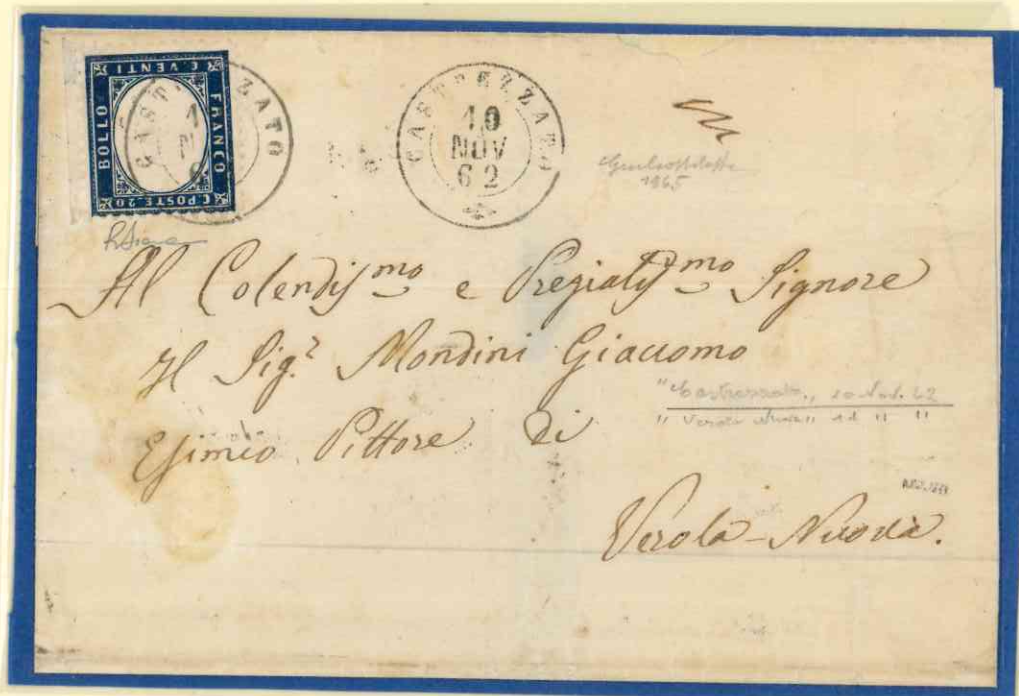 C. VENTI
BOLLO
FRANCO
C. POSTE. 20
CASTREZZATO
1
N
CASTREZZATO
10
NOV
62
1865
Al Colendis.mo e Pregiatis.mo Signore
Il Sig.r Mondini Giacomo
Esimio Pittore di
Verola-Nuova.
"Castrezzato„ 10 Nov. 62
" Verola Nuova " 11 " "